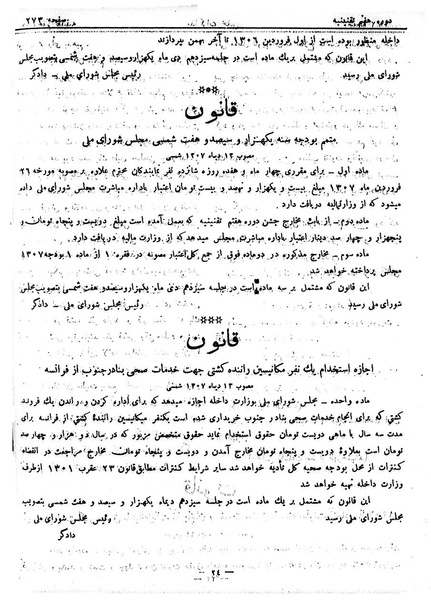 دوره هفتم تقنینیه صفحه ۲۷۳
داخله منظور بوده است از اول فروردین ۱۳۰۶ تا آخر بهمن بپردازند
این قانون که مشتمل بریك ماده است در جلسه سیزدهم دی ماه یکهزاروسیصد و هفت شمسی بتصویب مجلس
شورای ملی رسید رئیس مجلس شورای ملی ـ دادگر
قانون
متمم بودجه سنه یکهزار و سیصد و هفت شمسی مجلس شورای ملی
مصوب ۱۳ دیماه ۱۳۰۷ شمسی
ماده اول ـ برای مقرری چهار ماه و هفده روزه شانزده نفر نمایندگان محترم علاوه بر مصوبه مورخه ۲۶
فروردین ماه ۱۳۰۷ مبلغ بیست و یکهزار و نهصد و بیست تومان اعتبار باداره مباشرت مجلس شورای ملی داده
میشود که از وزارت مالیه دریافت دارد.
ماده دوم ـ از بابت مخارج جشن دوره هفتم تقنینیه که بعمل آمده است مبلغ دویست و پنجاه تومان و
پنجهزار و چهار صد دینار اعتبار باداره مباشرت مجلس میدهد که از وزارت مالیه دریافت دارد.
ماده سوم ـ مخارج مذکوره در دوماده فوق از جمع کل اعتبار مصوبه در فقره ۱۰ از ماده ۱ بودجه ۱۳۰۷
مجلس پرداخته خواهد شد.
این قانون که مشتمل بر سه ماده است در جلسه سیزدهم دی ماه یکهزاروسیصد و هفت شمسی بتصویب مجلس
شورای ملی رسید رئیس مجلس شورای ملی ـ دادگر
قانون
اجازه استخدام یك نفر مکانیسین راننده کشتی جهت خدمات صحی بنادر جنوب از فرانسه
مصوب ۱۳ دیماه ۱۳۰۷ شمسی
ماده واحده ـ مجلس شورای ملی بوزارت داخله اجازه میدهد که برای اداره کردن و راندن یك فروند
کشتی که برای انجام خدمات صحی بنادر جنوب خریداری شده است یکنفر میکانیسین راننده کشتی از فرانسه برای
مدت سه سال با ماهی دویست تومان حقوق استخدام نماید حقوق متخصص مزبور که در سال دو هزار و چهار صد
تومان است بعلاوه دویست و پنجاه تومان مخارج آمدن و دویست و پنجاه تومان مخارج مراجعت در انقضاء
کنترات از محل بودجه صحیه کل تأدیه خواهد شد سایر شرایط کنترات مطابق قانون ۲۳ عقرب ۱۳۰۱ ازطرف
وزارت داخله تهیه خواهد شد
این قانون که مشتمل بر یك ماده است در جلسه سیزدهم دیماه یکهزار و سیصد و هفت شمسی بتصویب
مجلس شورای ملی رسید رئیس مجلس شورای ملی ـ
دادگر
ـ ۲٤ ـ